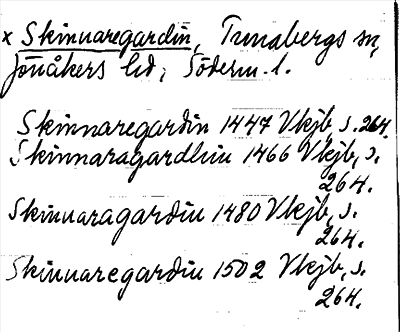 x Skinnaregardin, Tunabergs sn,
Jönåkers hd, Söderm. l.
Skinnaregardin 1447 Vkjb, s. 264.
Skinnaragardhin 1466 Vkjb, s.
264.
Skinnaragardin 1480 Vkjb, s.
264.
Skinnaregardin 1502 Vkjb, s.
264.